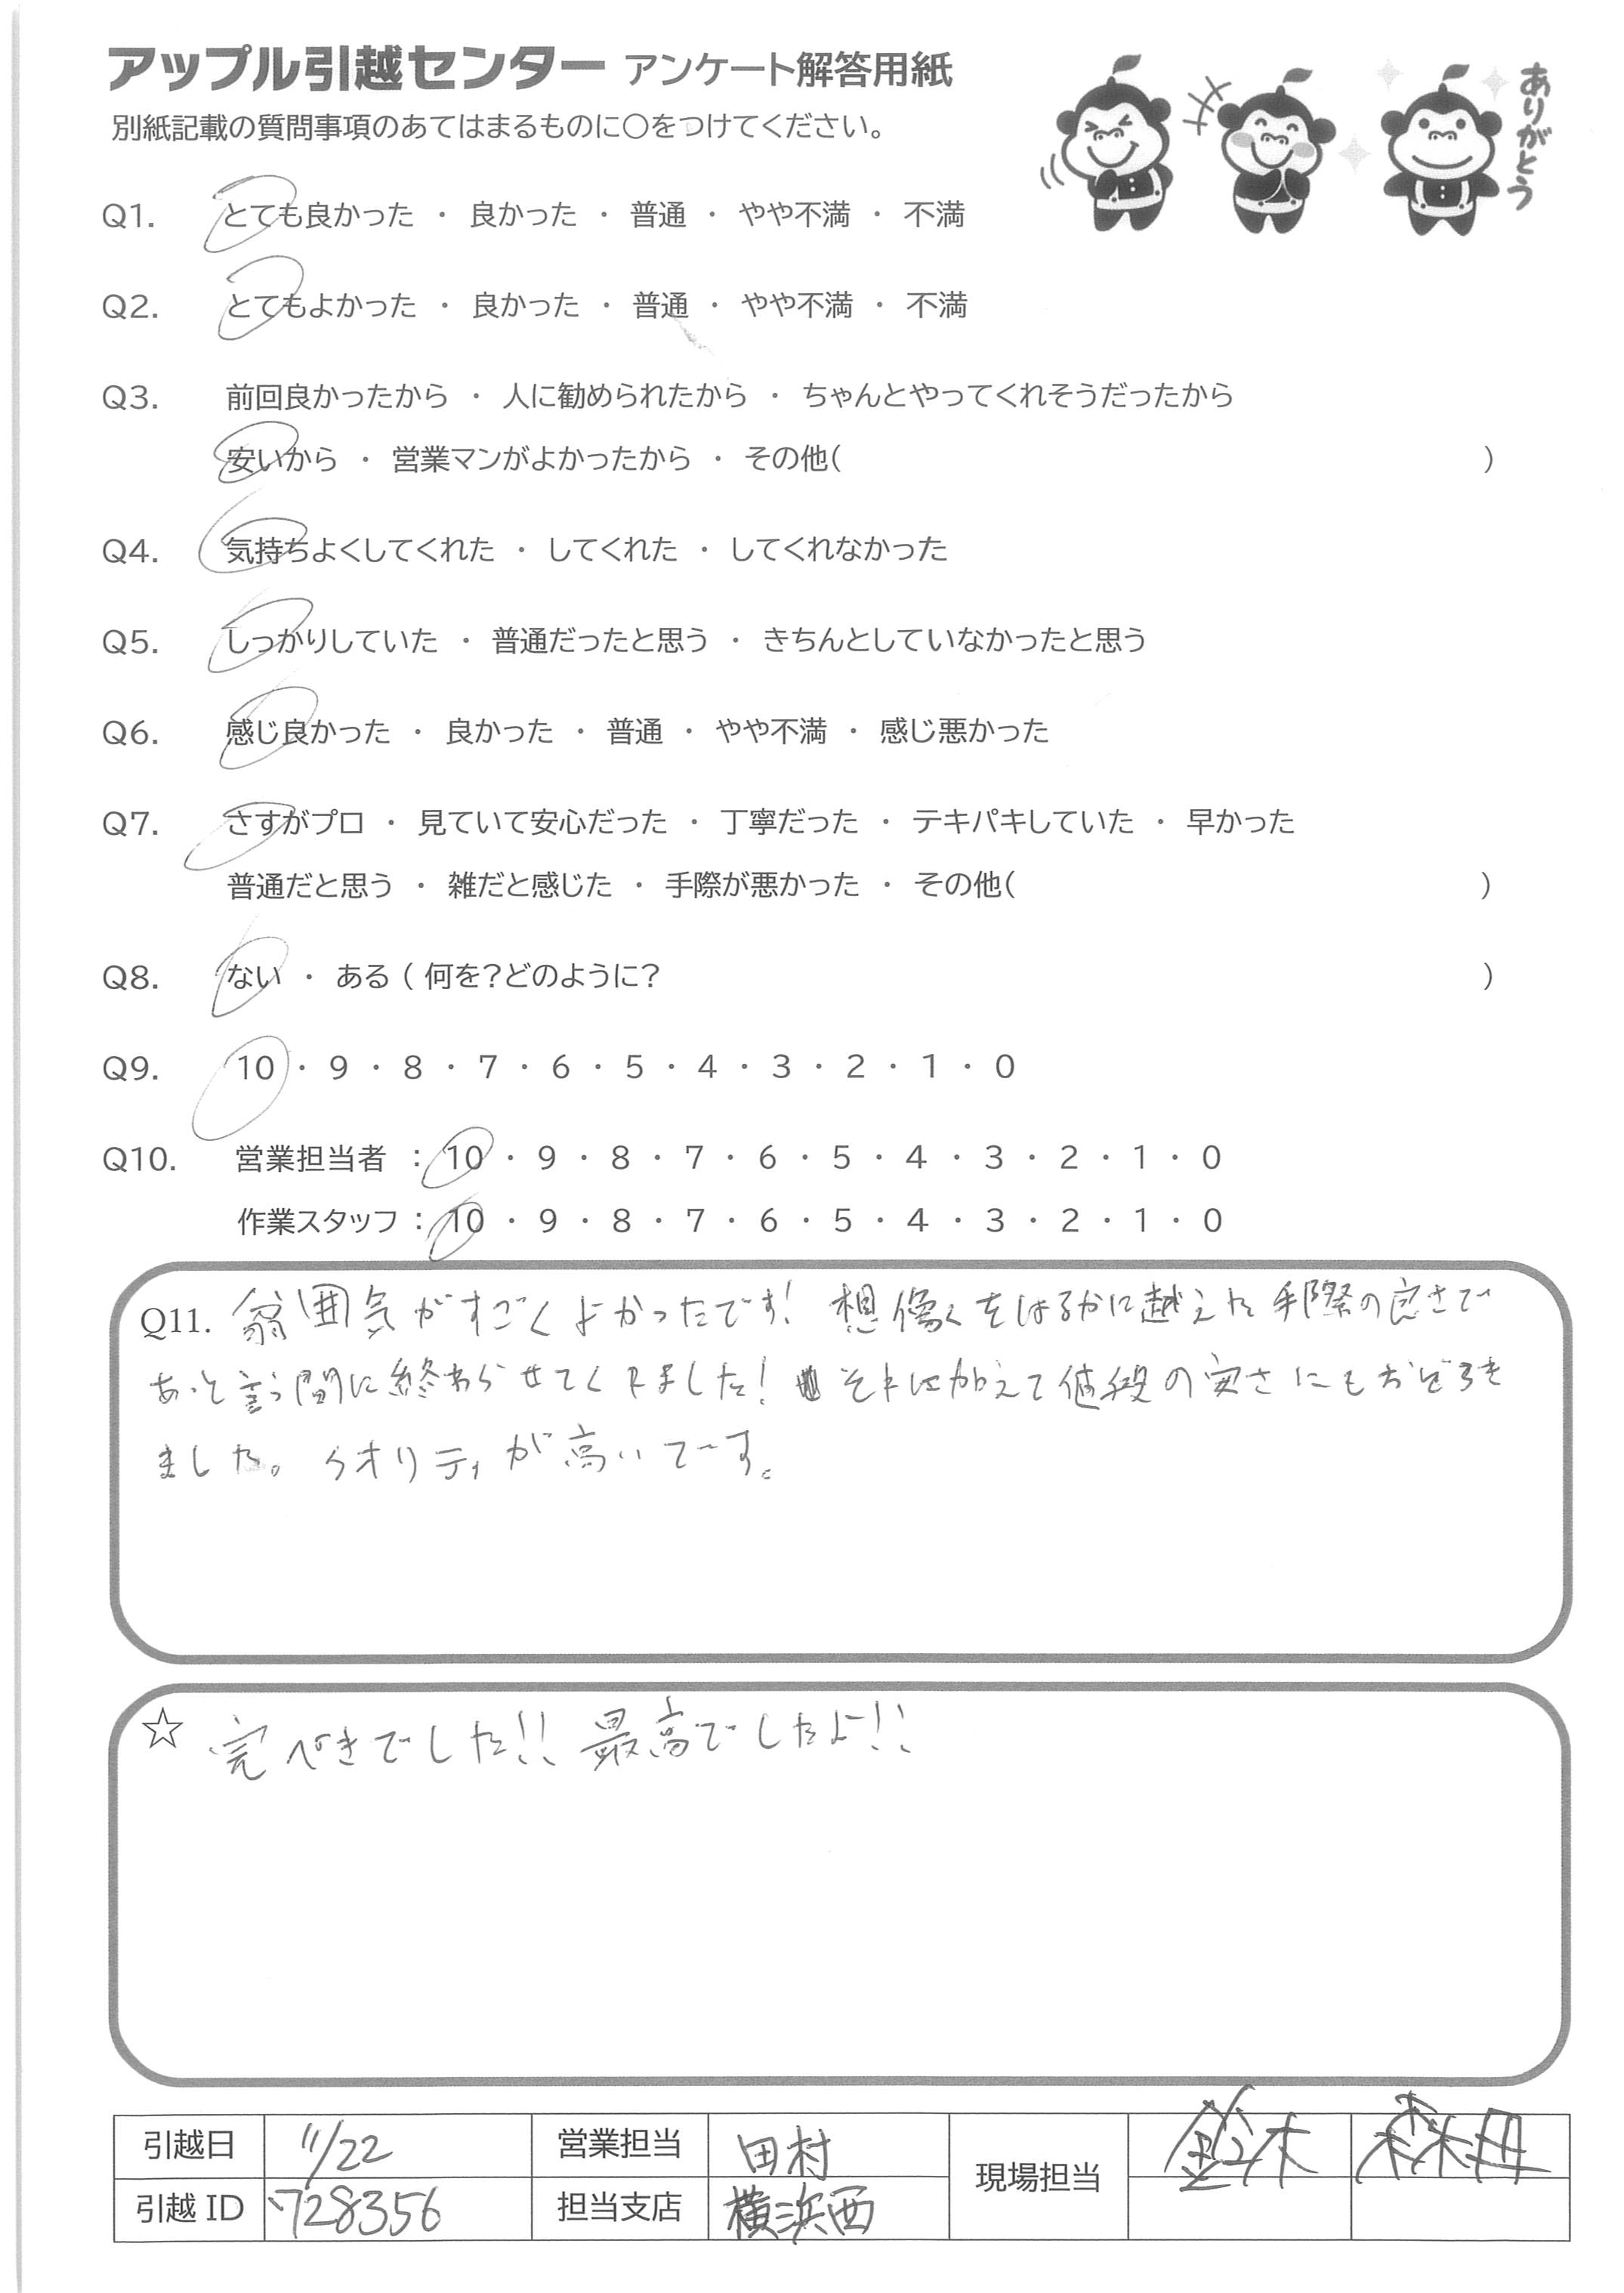 アップル引越センター アンケート解答用紙
ありがとう
別紙記載の質問事項のあてはまるものに○をつけてください。
Q1. とても良かった ・ 良かった ・ 普通 ・ やや不満 ・ 不満
Q2. とてもよかった ・ 良かった ・ 普通 ・ やや不満 ・ 不満
Q3. 前回良かったから ・ 人に勧められたから ・ ちゃんとやってくれそうだったから
安いから ・ 営業マンがよかったから ・ その他( )
Q4. 気持ちよくしてくれた ・ してくれた ・ してくれなかった
Q5. しっかりしていた ・ 普通だったと思う ・ きちんとしていなかったと思う
Q6. 感じ良かった ・ 良かった ・ 普通 ・ やや不満 ・ 感じ悪かった
Q7. さすがプロ ・ 見ていて安心だった ・ 丁寧だった ・ テキパキしていた ・ 早かった
普通だと思う ・ 雑だと感じた ・ 手際が悪かった ・ その他( )
Q8. ない ・ ある ( 何を?どのように? )
Q9. 10 ・ 9 ・ 8 ・ 7 ・ 6 ・ 5 ・ 4 ・ 3 ・ 2 ・ 1 ・ 0
Q10. 営業担当者 : 10 ・ 9 ・ 8 ・ 7 ・ 6 ・ 5 ・ 4 ・ 3 ・ 2 ・ 1 ・ 0
作業スタッフ : 10 ・ 9 ・ 8 ・ 7 ・ 6 ・ 5 ・ 4 ・ 3 ・ 2 ・ 1 ・ 0
Q11. 雰囲気がすごくよかったです! 想像をはるかに越えた手際の良さで
あっと言う間に終わらせてくれました! それに加えて値段の安さにもおどろき
ました。クオリティが高いです。
☆ 完ぺきでした!! 最高でしたよ!!
引越日 11/22 営業担当 田村 現場担当 鈴木
引越 ID 728356 担当支店 横浜西